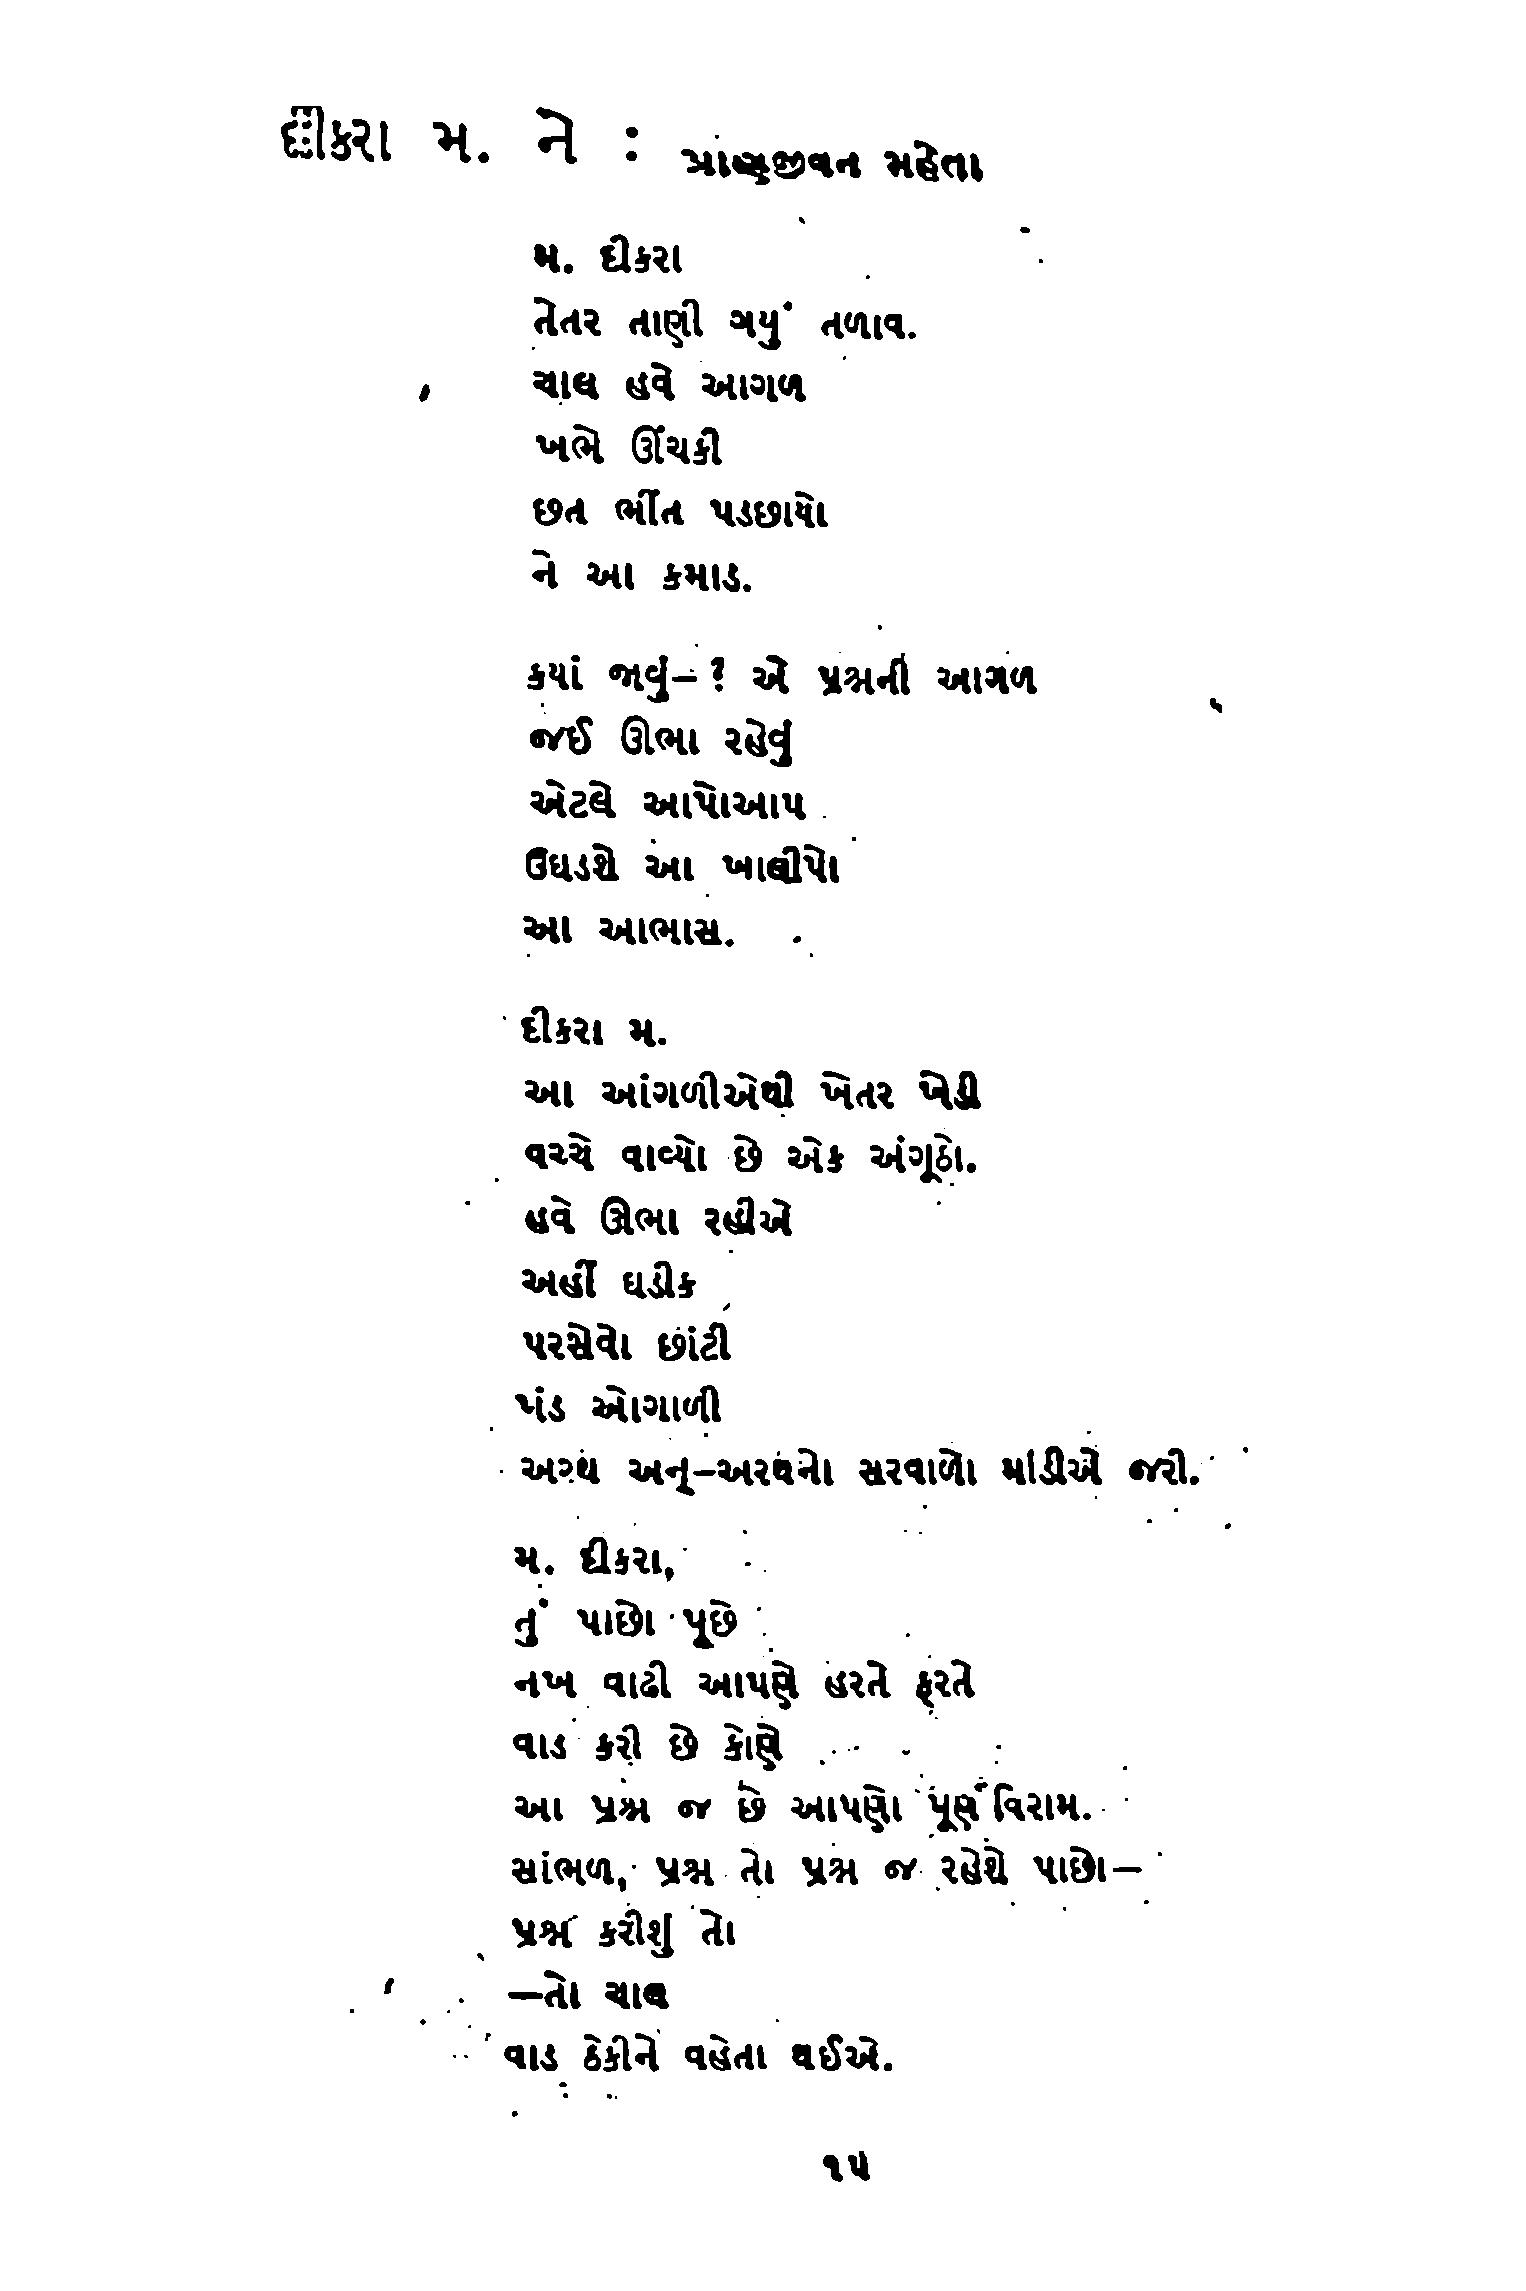 દીકરા મ. ને : પ્રાણજીવન મહેતા
મ. દીકરા
તેતર તાણી ગયું તળાવ.
ચાલ હવે આગળ
ખભે ઊંચકી
છત ભીંત પડછાયો
ને આ કમાડ.
કયાં જાવું–? એ પ્રશ્નની આગળ
જઈ ઊભા રહેવું
એટલે આપોઆપ
ઉઘડશે આ ખાલીપો
આ આભાસ.
દીકરા મ.
આ આંગળીએથી ખેતર ખેડી
વચ્ચે વાવ્યો છે એક અંગૂઠો.
હવે ઊભા રહીએ
અહીં ઘડીક
પરસેવો છાંટી
પંડ ઓગાળી
અરથ અન્–અરથનો સરવાળો માંડીએ જરી.
મ. દીકરા,
તું પાછો પૂછે
નખ વાઢી આપણે હરતે ફરતે
વાડ કરી છે કોણે
આ પ્રશ્ન જ છે આપણો પૂર્ણવિરામ.
સાંભળ, પ્રશ્ન તો પ્રશ્ન જ રહેશે પાછો–
પ્રશ્ન કરીશું તો
–તો ચાલ
વાડ ઠેકીને વહેતા થઈએ.
૧૫